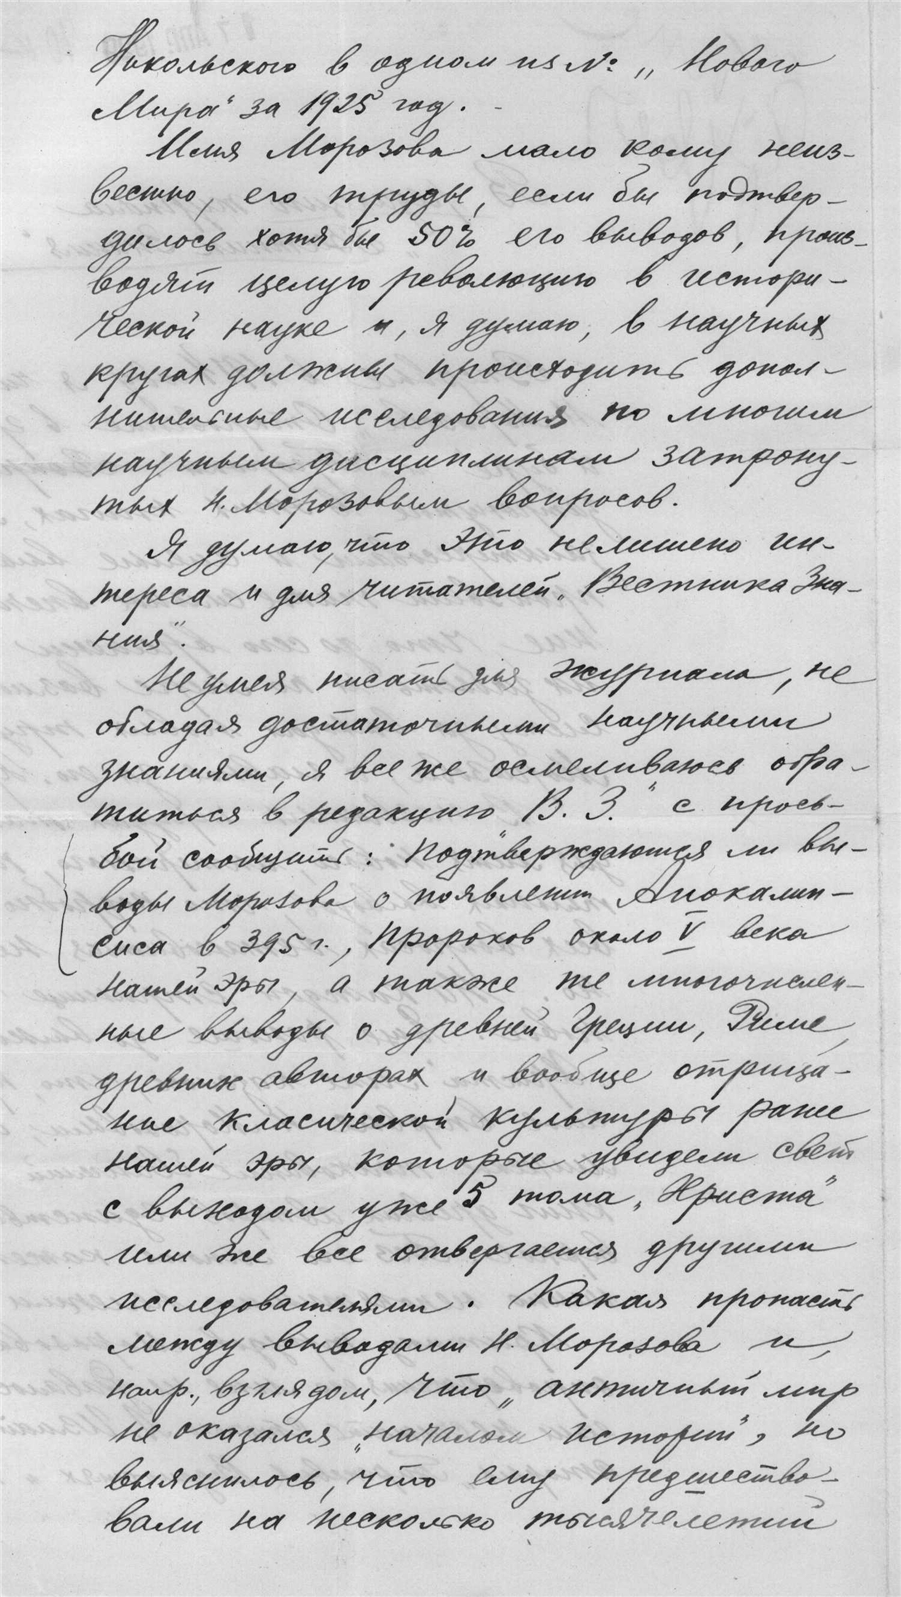 Никольского в одном из №: „Нового
Мира“ за 1925 год.
Имя Морозова мало кому неиз-
вестно, его труды, если бы подтвер-
дилось хотя бы 50% его выводов, произ-
водят целую революцию в истори-
ческой науке и, я думаю, в научных
кругах должны происходить допол-
нительные исследования по многим
научным дисциплинам затрону-
тых Н. Морозовым вопросов.
Я думаю, что это нелишено ин-
тереса и для читателей „Вестника Зна-
ния“.
Не умея писать для журнала, не
обладая достаточными научными
знаниями, я все же осмеливаюсь обра-
титься в редакцию В. З.“ с прось-
бой сообщить: Подтверждаются ли вы-
воды Морозова о появлении Апокалип-
сиса в 395 г., пророков около V века
нашей эры, а также те многочислен-
ные выводы о древней Греции, Риме,
древних авторах и вообще отрица-
ние класической культуры ранее
нашей эры, которые увидели свет
с выходом уже 5 тома „Христа“
или же все отвергается другими
исследователями. Какая пропасть
между выводами Н. Морозова и,
напр., взглядом, что „античный мир
не оказался „началом истории“, но
выяснилось, что ему предшество-
вали на несколько тысячелетий